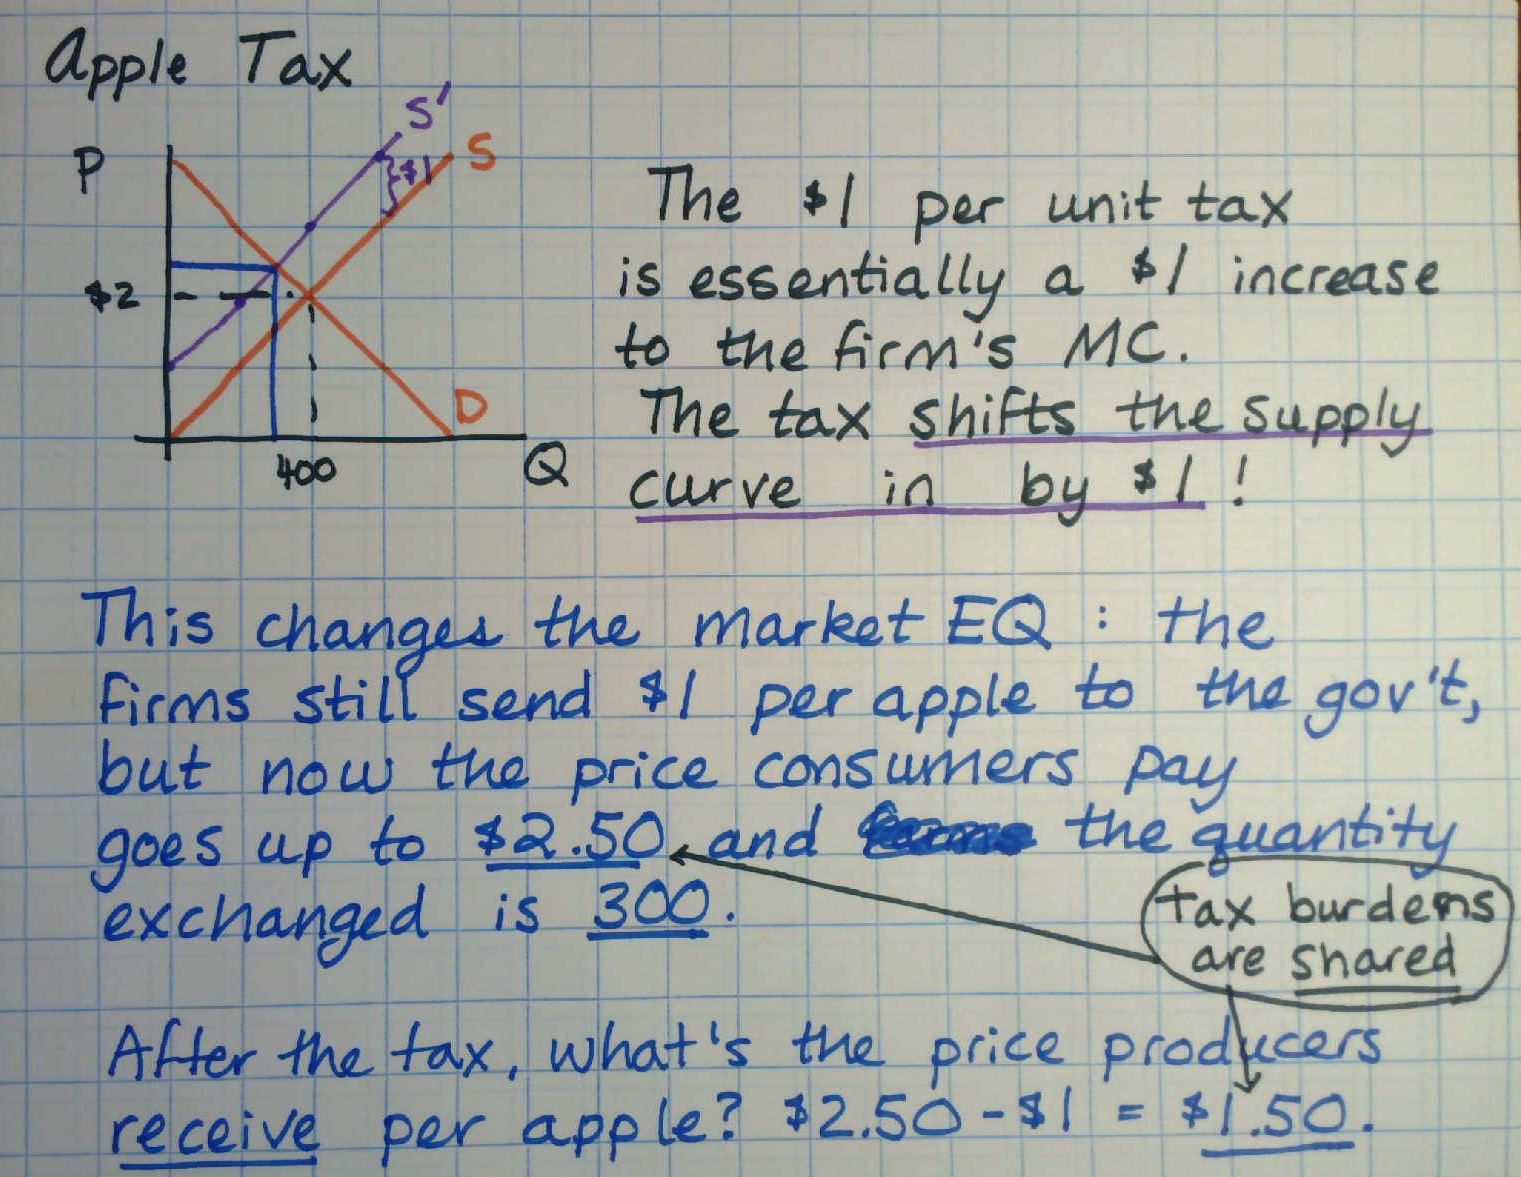 Apple Tax
S'
P
$1
S
$2
D
400
Q
The $1 per unit tax
is essentially a $1 increase
to the firm's MC.
The tax shifts the supply
curve in by $1!
This changes the market EQ: the
firms still send $1 per apple to the gov't,
but now the price consumers pay
goes up to $2.50 and the quantity
exchanged is 300.
tax burdens
are shared
After the tax, what's the price producers
receive per apple? $2.50 - $1 = $1.50.